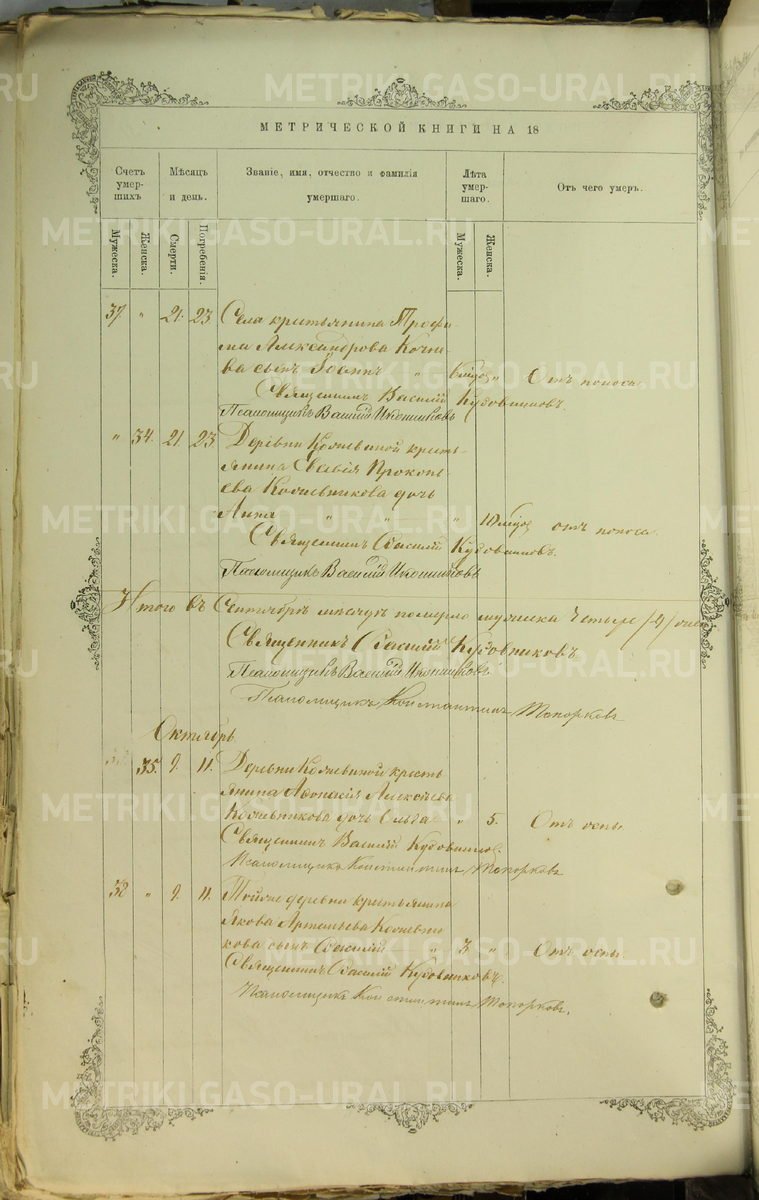 МЕТРИЧЕСКОЙ КНИГИ НА 18
Счетъ умер- шихъ
Мѣсяцъ и день.
Званіе, имя, отчество и фамилія умершаго.
Лѣта умер- шаго.
Отъ чего умеръ.
Мужеска. Женска. Смерти. Погребенія. Мужеска. Женска.
37 " 21. 23 Села крестьянина Трофи-
ма Александрова
сынъ Іоаннъ " " Отъ поноса
Священникъ Василій Кудовниковъ.
Псаломщикъ Василій Иконниковъ
" 34. 21. 23 Деревни крестья-
янина Прокопь-
ева Кожевникова дочь
Анна " " " отъ поноса
Священникъ Василій Кудовниковъ.
Псаломщикъ Василій Иконниковъ
Итого въ Сентябрѣ мѣсяцѣ померло мужеска четыре /4/
Священникъ Василій Кудовниковъ
Псаломщикъ Василій Иконниковъ
Псаломщикъ Константинъ Топорковъ
Октябрь
35. 9. 11. Деревни крестья
янина Афонасія Алексѣева
Кожевникова дочь Ольга " 5. Отъ оспы
Священникъ Василій Кудовниковъ.
Псаломщикъ Константинъ Топорковъ
38 " 9. 11. Тойже деревни крестьянина
Якова Артемьева Кожевни
кова сынъ Василій " 3 " Отъ оспы
Священникъ Василій Кудовниковъ.
Псаломщикъ Константинъ Топорковъ.
METRIKI.GASO-URAL.RU